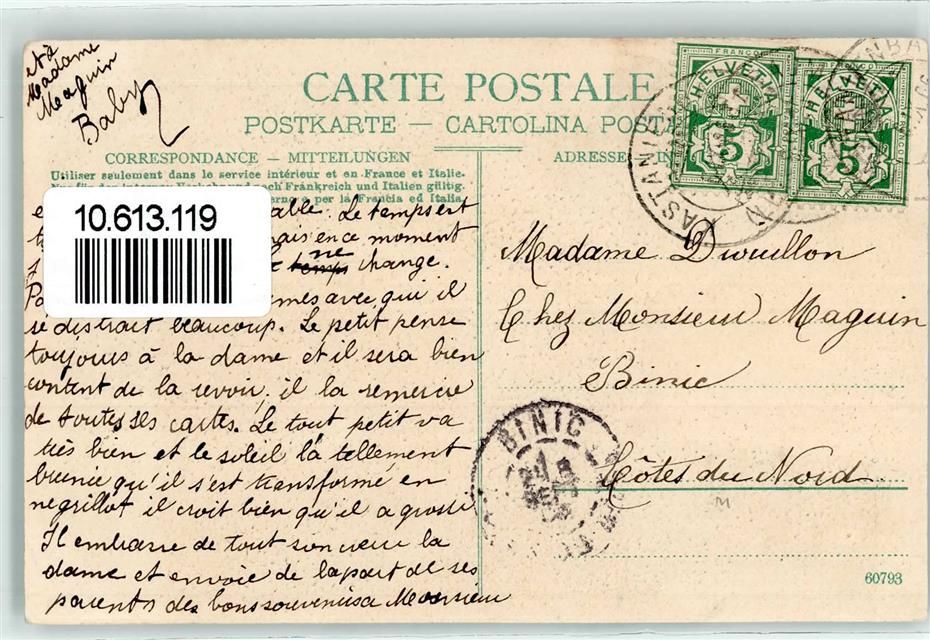 et à
Madame
Maguin
Baby
CARTE POSTALE
POSTKARTE — CARTOLINA POSTA
CORRESPONDANCE — MITTEILUNGEN
Utiliser seulement dans le service intérieur et en France et Italie.
Frankreich und Italien gültig.
per la Francia ed Italia.
10.613.119
able. Le temps est
mais en ce moment
ne change.
mes avec qui il
se distrait beaucoup. Le petit pense
toujours à la dame et il sera bien
content de la revoir. il la remercie
de toutes ses cartes. Le tout petit va
très bien et le soleil l'a tellement
brunie qu'il s'est transformé en
negrillot il croit bien qu'il a grossi
Il embrasse de tout son cœur la
dame et envoie de la part de ses
parents des bons souvenirs a Monsieur
ADRESSE
FRANCO
HELVETIA
5
FRANCO
HELVETIA
5
CASTANI
Madame Drouillon
Chez Monsieur Maguin
Binic
Côtes du Nord
BINIC
60793